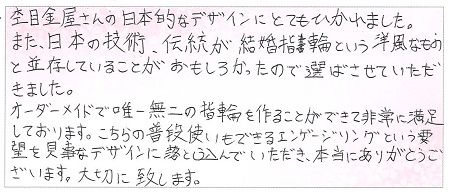 杢目金屋さんの日本的なデザインにとてもひかれました。
また、日本の技術、伝統が結婚指輪という洋風なもの
と並存していることがおもしろかったので選ばさせていただ
きました。
オーダーメイドで唯一無二の指輪を作ることができて非常に満足
しております。こちらの普段使いもできるエンゲージリングという要
望を見事なデザインに落とし込んでいただき、本当にありがとうご
ざいます。大切に致します。